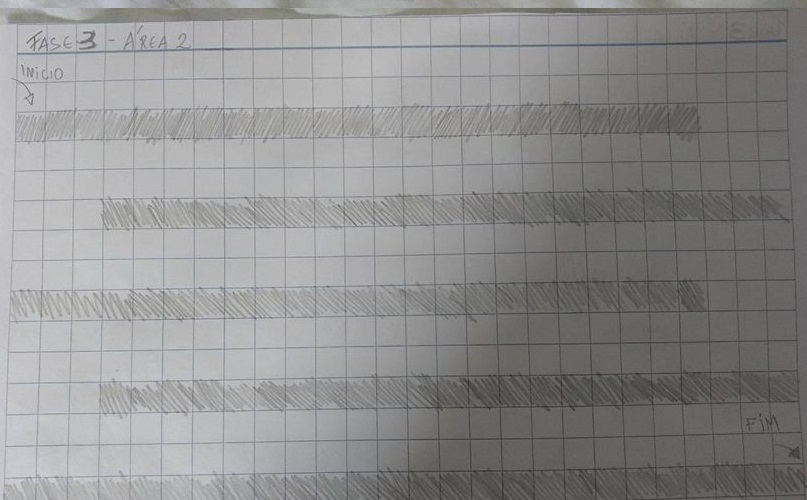 FASE 3 - ÁREA 2
INICIO
FIM